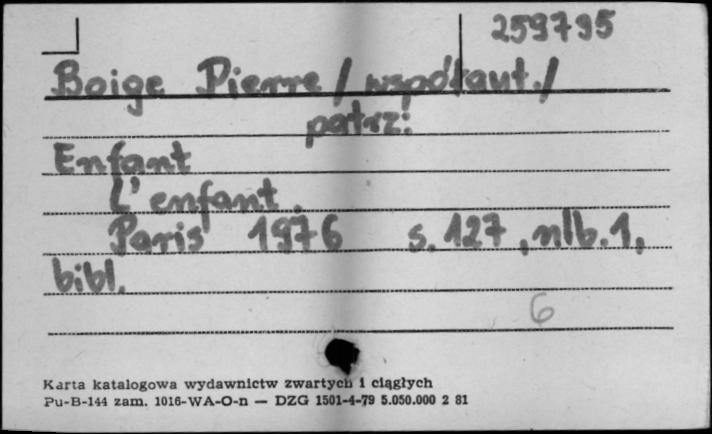 259795
Boige Pierre /współaut./
patrz:
Enfant
L'enfant.
Paris 1976 s. 127, nlb. 1,
bibl.
6
Karta katalogowa wydawnictw zwartych i ciągłych
Pu-B-144 zam. 1016-WA-O-n — DZG 1501-4-79 5.050.000 2 81